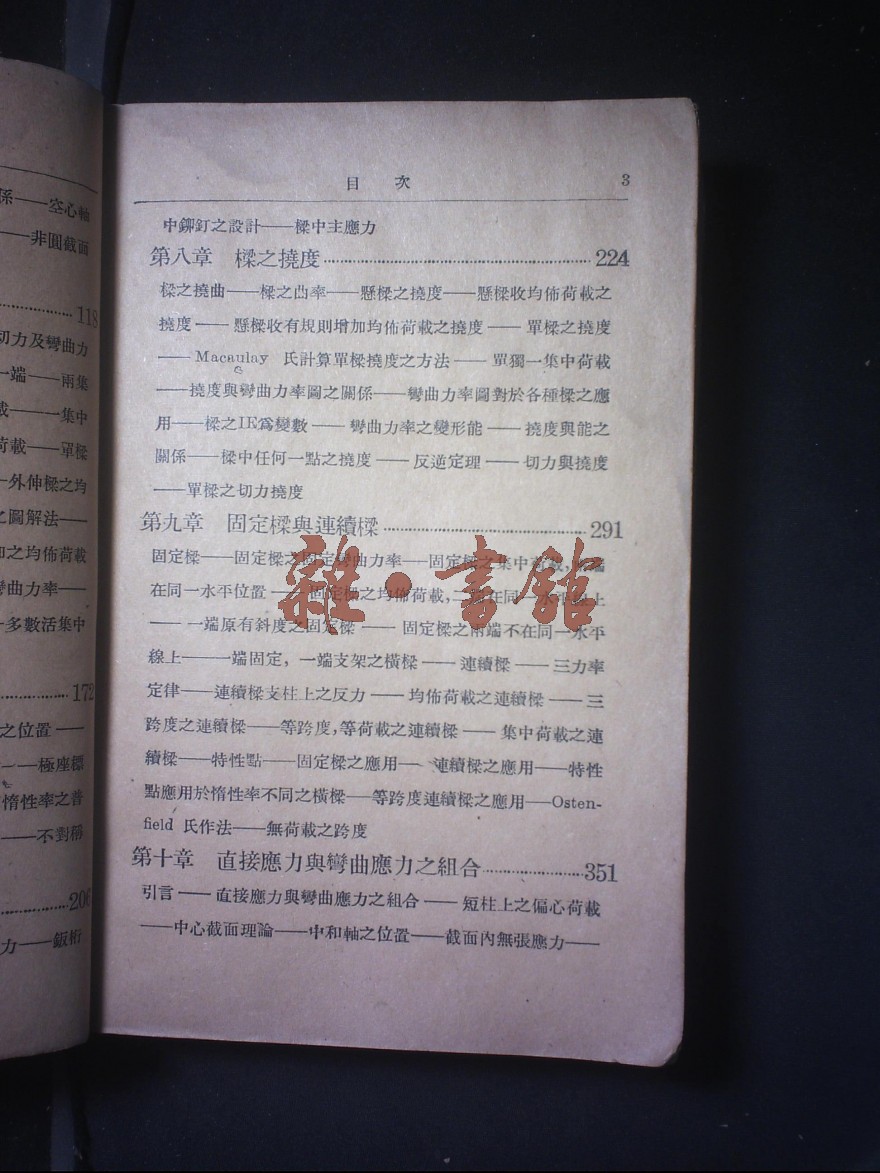 係——空心軸
——非圓截面
118
切力及彎曲力
一端——兩集
載——一集中
荷載——單樑
外伸樑之均
之圖解法——
和之均佈荷載
彎曲力率——
多數活集中
172
之位置——
——極座標
惰性率之普
——不對稱
200
力——鈑桁
目 次 3
中鉚釘之設計——樑中主應力
第八章 樑之撓度 224
樑之撓曲——樑之凸率——懸樑之撓度——懸樑收均佈荷載之
撓度——懸樑收有規則增加均佈荷載之撓度——單樑之撓度
——Macaulay 氏計算單樑撓度之方法——單獨一集中荷載
——撓度與彎曲力率圖之關係——彎曲力率圖對於各種樑之應
用——樑之IE爲變數——彎曲力率之變形能——撓度與能之
關係——樑中任何一點之撓度——反逆定理——切力與撓度
——單樑之切力撓度
第九章 固定樑與連續樑 291
固定樑——固定樑之固定彎曲力率——固定樑之集中荷載,端
在同一水平位置——固定樑之均佈荷載,二端在同一水平線上
——一端原有斜度之固定樑——固定樑之兩端不在同一水平
線上——一端固定,一端支架之橫樑——連續樑——三力率
定律——連續樑支柱上之反力——均佈荷載之連續樑——三
跨度之連續樑——等跨度,等荷載之連續樑——集中荷載之連
續樑——特性點——固定樑之應用——連續樑之應用——特性
點應用於惰性率不同之橫樑——等跨度連續樑之應用——Osten-
field 氏作法——無荷載之跨度
第十章 直接應力與彎曲應力之組合 351
引言——直接應力與彎曲應力之組合——短柱上之偏心荷載
——中心截面理論——中和軸之位置——截面內無張應力——
雜·書館